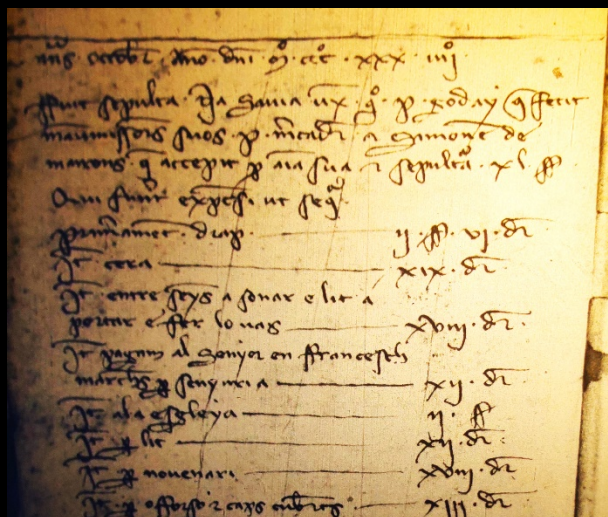 ms octobr Ano dni mº ccc xxx iiiiº
ffuit sepulta Na Savia ux qº p roday q fecit
manumissors suos p mcader a Simone de
marons q accepit p aia sua e sepultura xl ss
Qui funt expes ut seqr
primament drap ii ss vi dr
It cera xix dr
It entre seys a sonar e lit a
portar e fer lo vas xviii dr
It pagam al Senyor en ffrancesch
p senyuria xii dr
It a la esgleya ii ss
It p lit xii dr
It p novenari xviii dr
It p offerso e caps cubrts xiii dr